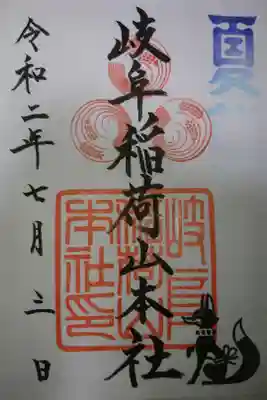 夏
岐阜稲荷山本社
岐阜
稲荷山
本社印
令和二年七月三日